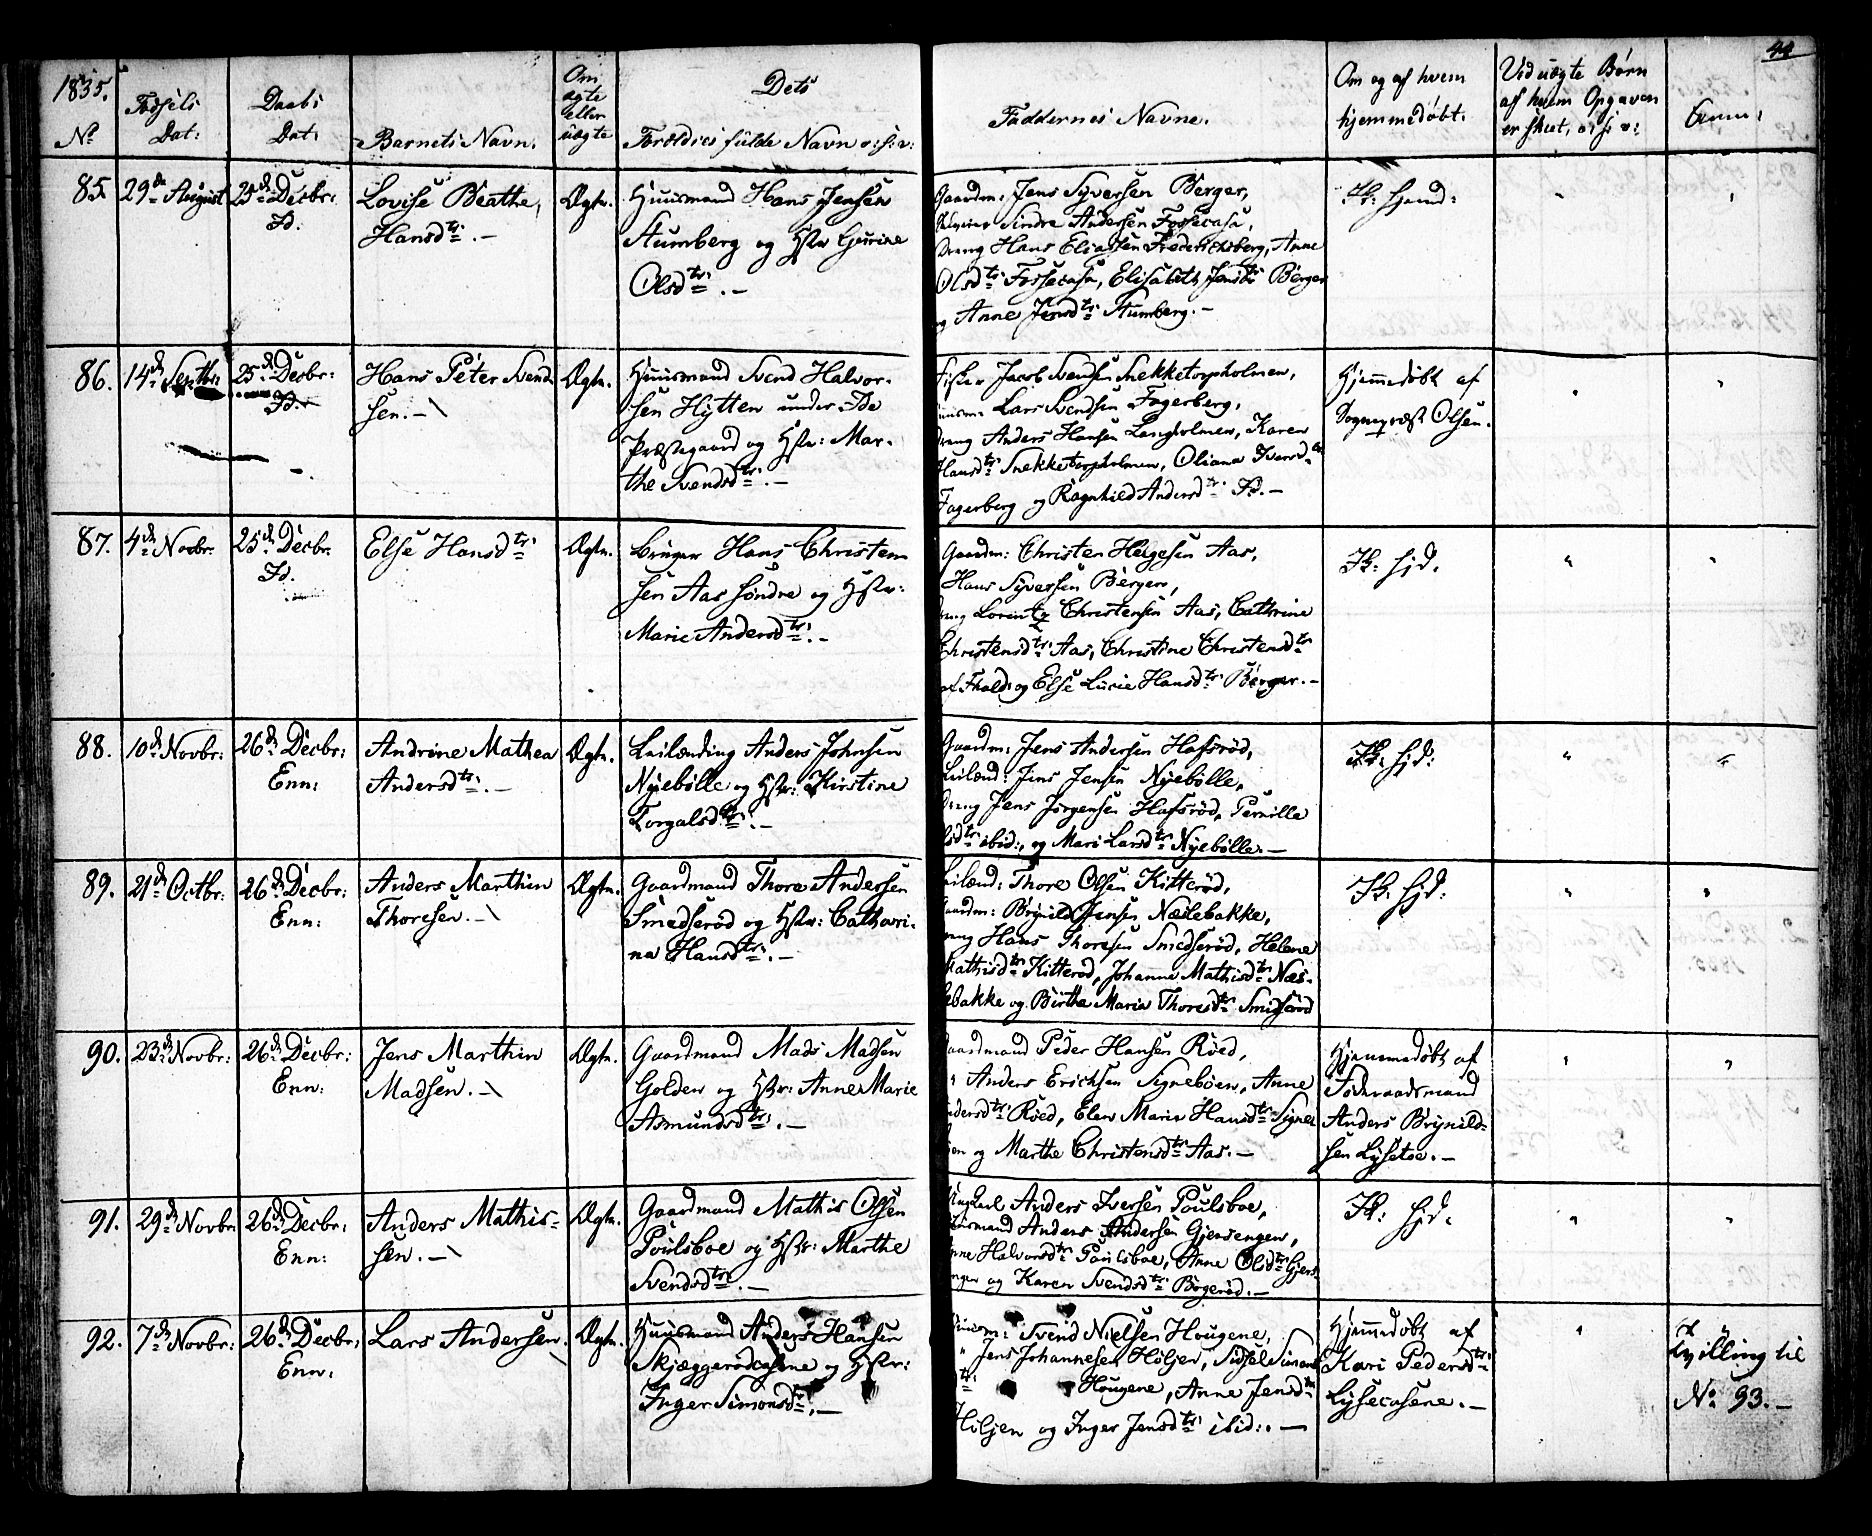 44
1835.
No
Fødsels
Dat:
Daabs
Dat:
Barnets Navn.
Om
ægte
eller
uægte
Dets
Forældres fulde Navn o: s: v:
Faddernes Navne.
Om og af hvem
hjemmedøbt.
Vid uægte Børn
af hvem Opgaven
er skeet, o: s: v:
Anm:
85.
29de August
25de Decbr:
Id.
Lovise Beathe,
Hansdtr. –
Ægte.
Huusmand Hans Jensen
Stumberg og Hstr Gurine
Olsdtr. –
Gaardm: Jens Syversen Berger,
Sindre Andersen Fossecasa,
Dreng Hans Eliassen Frederichsberg, Anne
Olsdtr: Fossecasa, Elisabeth Jensdtr Berger
og Anne Jensdtr: Stumberg. –
Ik: hjemd:
"
"
86.
14de Septbr:
25de Decbr:
Id.
Hans Peter Svend
sen. –
Ægte.
Huusmand Svend Halvor-
sen Hytten under Ide
Præstegaard og Hstr: Mar-
the Svendsdtr. –
Fisker Jacob Svendsen Snekketorpholmen,
Lars Svendsen Fagerberg,
Dreng Anders Hansen Langholmen, Karen
Hansdtr Snekketorpholmen, Oliana Iversdtr
Fagerberg og Ragnhild Andersdtr. Id. –
Hjemmedøbt af
Sognepræst Olsen.
"
"
87.
4de Novbr.
25de Decbr.
Id.
Else Hansdtr:
Ægte.
Bruger Hans Christen
sen Aas søndre og Hstr:
Marie Andersdtr. –
Gaardm: Christen Helgesen Aas,
Hans Syversen Bergen,
Dreng Lorentz Christensen Aas, Cathrine
Christensdtr: Aas, Christine Christensdtr
af Fhald: og Else Lucie Hansdtr: Berger. –
Ik: hjd.
"
"
88.
10de Novbr:
26de Decbr:
Enn:
Andrine Mathea
Andersdtr. –
Ægte.
Leilænding Anders Johnsen
Nyebølle og Hstr: Kirstine
Torgalsdtr. –
Gaardm: Jens Andersen Hafsrød,
Leilænd: Jens Jensen Nyebølle,
Dreng Jens Jørgensen Hafsrød, Pernille
ibid:, og Mari Larsdtr: Nyebølle. –
Ik: hjd:
"
"
89.
21de Octbr:
26de Decbr:
Enn:
Anders Marthin
Thoresen. –
Ægte.
Gaardmand Thore Andersen
Smedserød og Hstr: Cathari-
na Hansdtr. –
Leilænd: Thore Olsen Kitterød,
Gaardm: Brynild Jensen Næslebakke,
Dreng Hans Thoresen Smedserød, Helene
Mathisdtr Kitterød, Johanne Mathisdtr Næs-
lebakke og Birthe Marie Thoresdtr Smedserød
Ik: hjd.
"
"
90.
23de Novbr:
26de Decbr:
Enn:
Jens Marthin
Madsen. –
Ægte.
Gaardmand Mads Madsen
Golden og Hstr: Anne Marie
Asmundsdtr. –
Gaardmand Peder Hansen Røed,
" Anders Erichsen Signebøen, Anne
Andersdtr: Røed, Elen Marie Hansdtr: Signe-
bøen og Marthe Christensdtr Aas. –
Hjemmedøbt af
Føderaadsmand
Anders Brynild-
sen Lysetoe. –
"
"
91.
29de Novbr:
26de Decbr:
Enn:
Anders Mathis-
sen. –
Ægte.
Gaardmand Mathis Olsen
Poulsboe og Hstr: Marthe
Svendsdtr. –
Ungkarl Anders Iversen Poulsboe,
Huusmand Anders Andersen Gjersengen,
Anne Halvorsdtr Poulsboe, Anne Olsdtr Gjers-
engen og Karen Svendsdtr: Bøgerød. –
Ik: hjd.
"
"
92.
7de Novbr:
26de Decbr:
Enn:
Lars Andersen.
Ægte.
Huusmand Anders Hansen
Skjæggerødcasene og Hstr:
Inger Simonsdtr. –
Huusm: Svend Nielsen Hougene,
" Jens Johannesen Høljen, Sidsel Simons
dtr: Hougene, Anne Jensdtr
Høljen og Inger Jensdtr: ibid:. –
Hjemmedøbt af
Kari Pedersdtr:
Lysecasene. –
"
Tvilling til
No 93. –